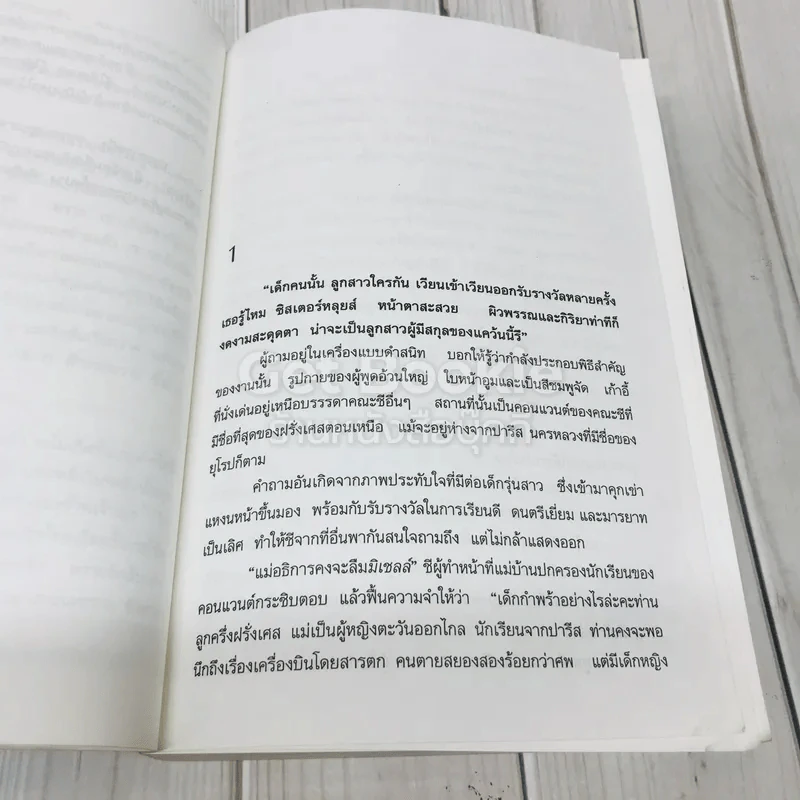 1
"เด็กคนนั้น ลูกสาวใครกัน เวียนเข้าเวียนออกรับรางวัลหลายครั้ง
เธอรู้ไหม ซิสเตอร์หลุยส์ หน้าตาสะสวย ผิวพรรณและกิริยาท่าทีก็
งดงามสะดุดตา น่าจะเป็นลูกสาวผู้มีสกุลของแคว้นนี้รึ"
ผู้ถามอยู่ในเครื่องแบบดำสนิท บอกให้รู้ว่ากำลังประกอบพิธีสำคัญ
ของงานนั้น รูปกายของผู้พูดอ้วนใหญ่ ใบหน้าอูมและเป็นสีชมพูจัด เก้าอี้
ที่นั่งเด่นอยู่เหนือบรรรดาคณะชีอื่นๆ สถานที่นั้นเป็นคอนแวนต์ของคณะชีที่
มีชื่อที่สุดของฝรั่งเศสตอนเหนือ แม้จะอยู่ห่างจากปารีส นครหลวงที่มีชื่อของ
ยุโรปก็ตาม
คำถามอันเกิดจากภาพประทับใจที่มีต่อเด็กรุ่นสาว ซึ่งเข้ามาคุกเข่า
แหงนหน้าขึ้นมอง พร้อมกับรับรางวัลในการเรียนดี ดนตรีเยี่ยม และมารยาท
เป็นเลิศ ทำให้ชีจากที่อื่นพากันสนใจถามถึง แต่ไม่กล้าแสดงออก
"แม่อธิการคงจะลืมมิเชลล์" ชีผู้ทำหน้าที่แม่บ้านปกครองนักเรียนของ
คอนแวนต์กระซิบตอบ แล้วฟื้นความจำให้ว่า "เด็กกำพร้าอย่างไรล่ะคะท่าน
ลูกครึ่งฝรั่งเศส แม่เป็นผู้หญิงตะวันออกไกล นักเรียนจากปารีส ท่านคงจะพอ
นึกถึงเรื่องเครื่องบินโดยสารตก คนตายสยองสองร้อยกว่าศพ แต่มีเด็กหญิง
Get Bookie
ร้านหนังสือกุ๊กกิ๊